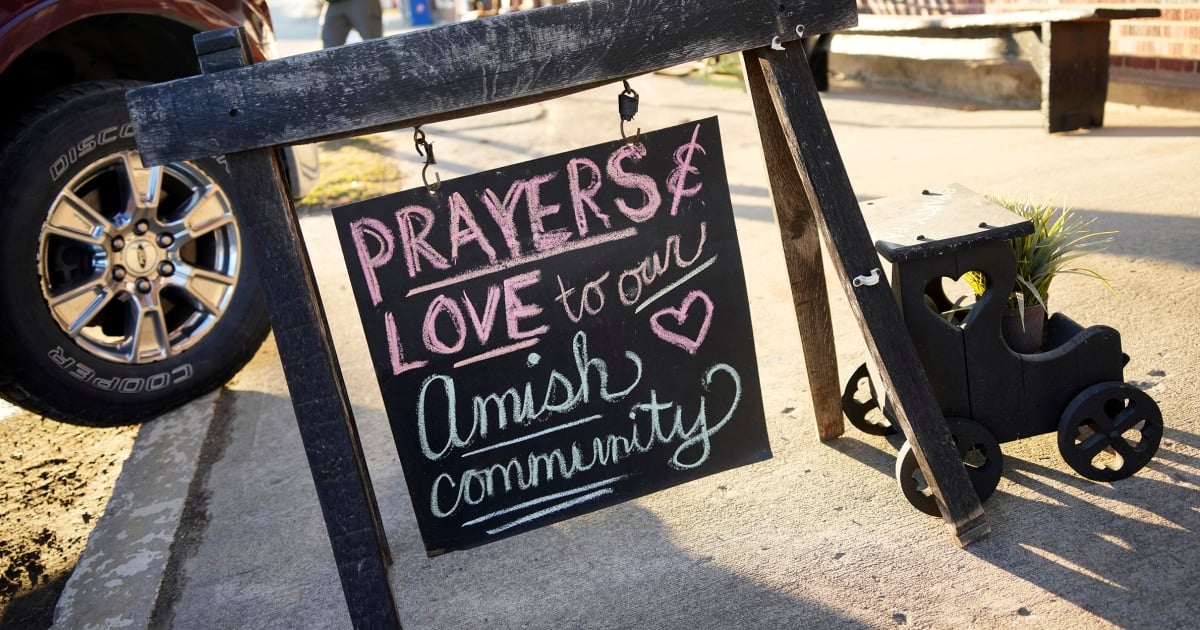 DISCO
COOPER
PRAYERS &
LOVE to our
Amish
community